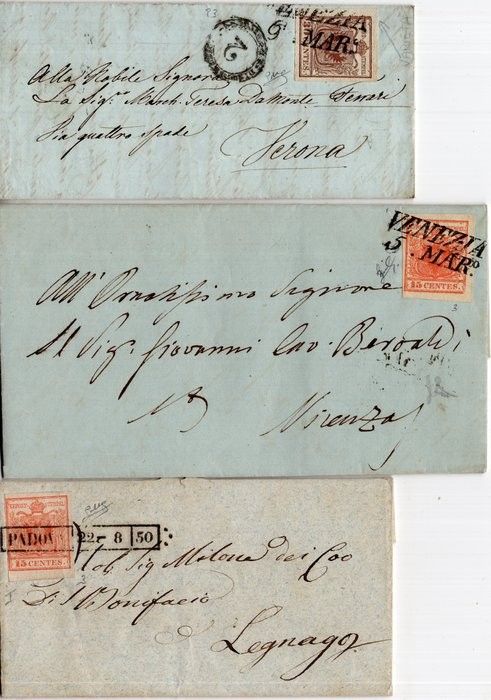 VENEZIA
6 MARZ
12
Alla Nobile Signora
La Sig.ra March. Teresa Dalmonte Ferrari
Via quattro spade
Verona
VENEZIA
5. MAR.º
15 CENTES.
All' Ornatissimo Signore
Il Sig. Giovanni Cav. Beroaldi
Vicenza
PADOV
22 - 8 50
15 CENTES.
Nob Sig Milone dei Co
Di S Bonifacio
Legnago